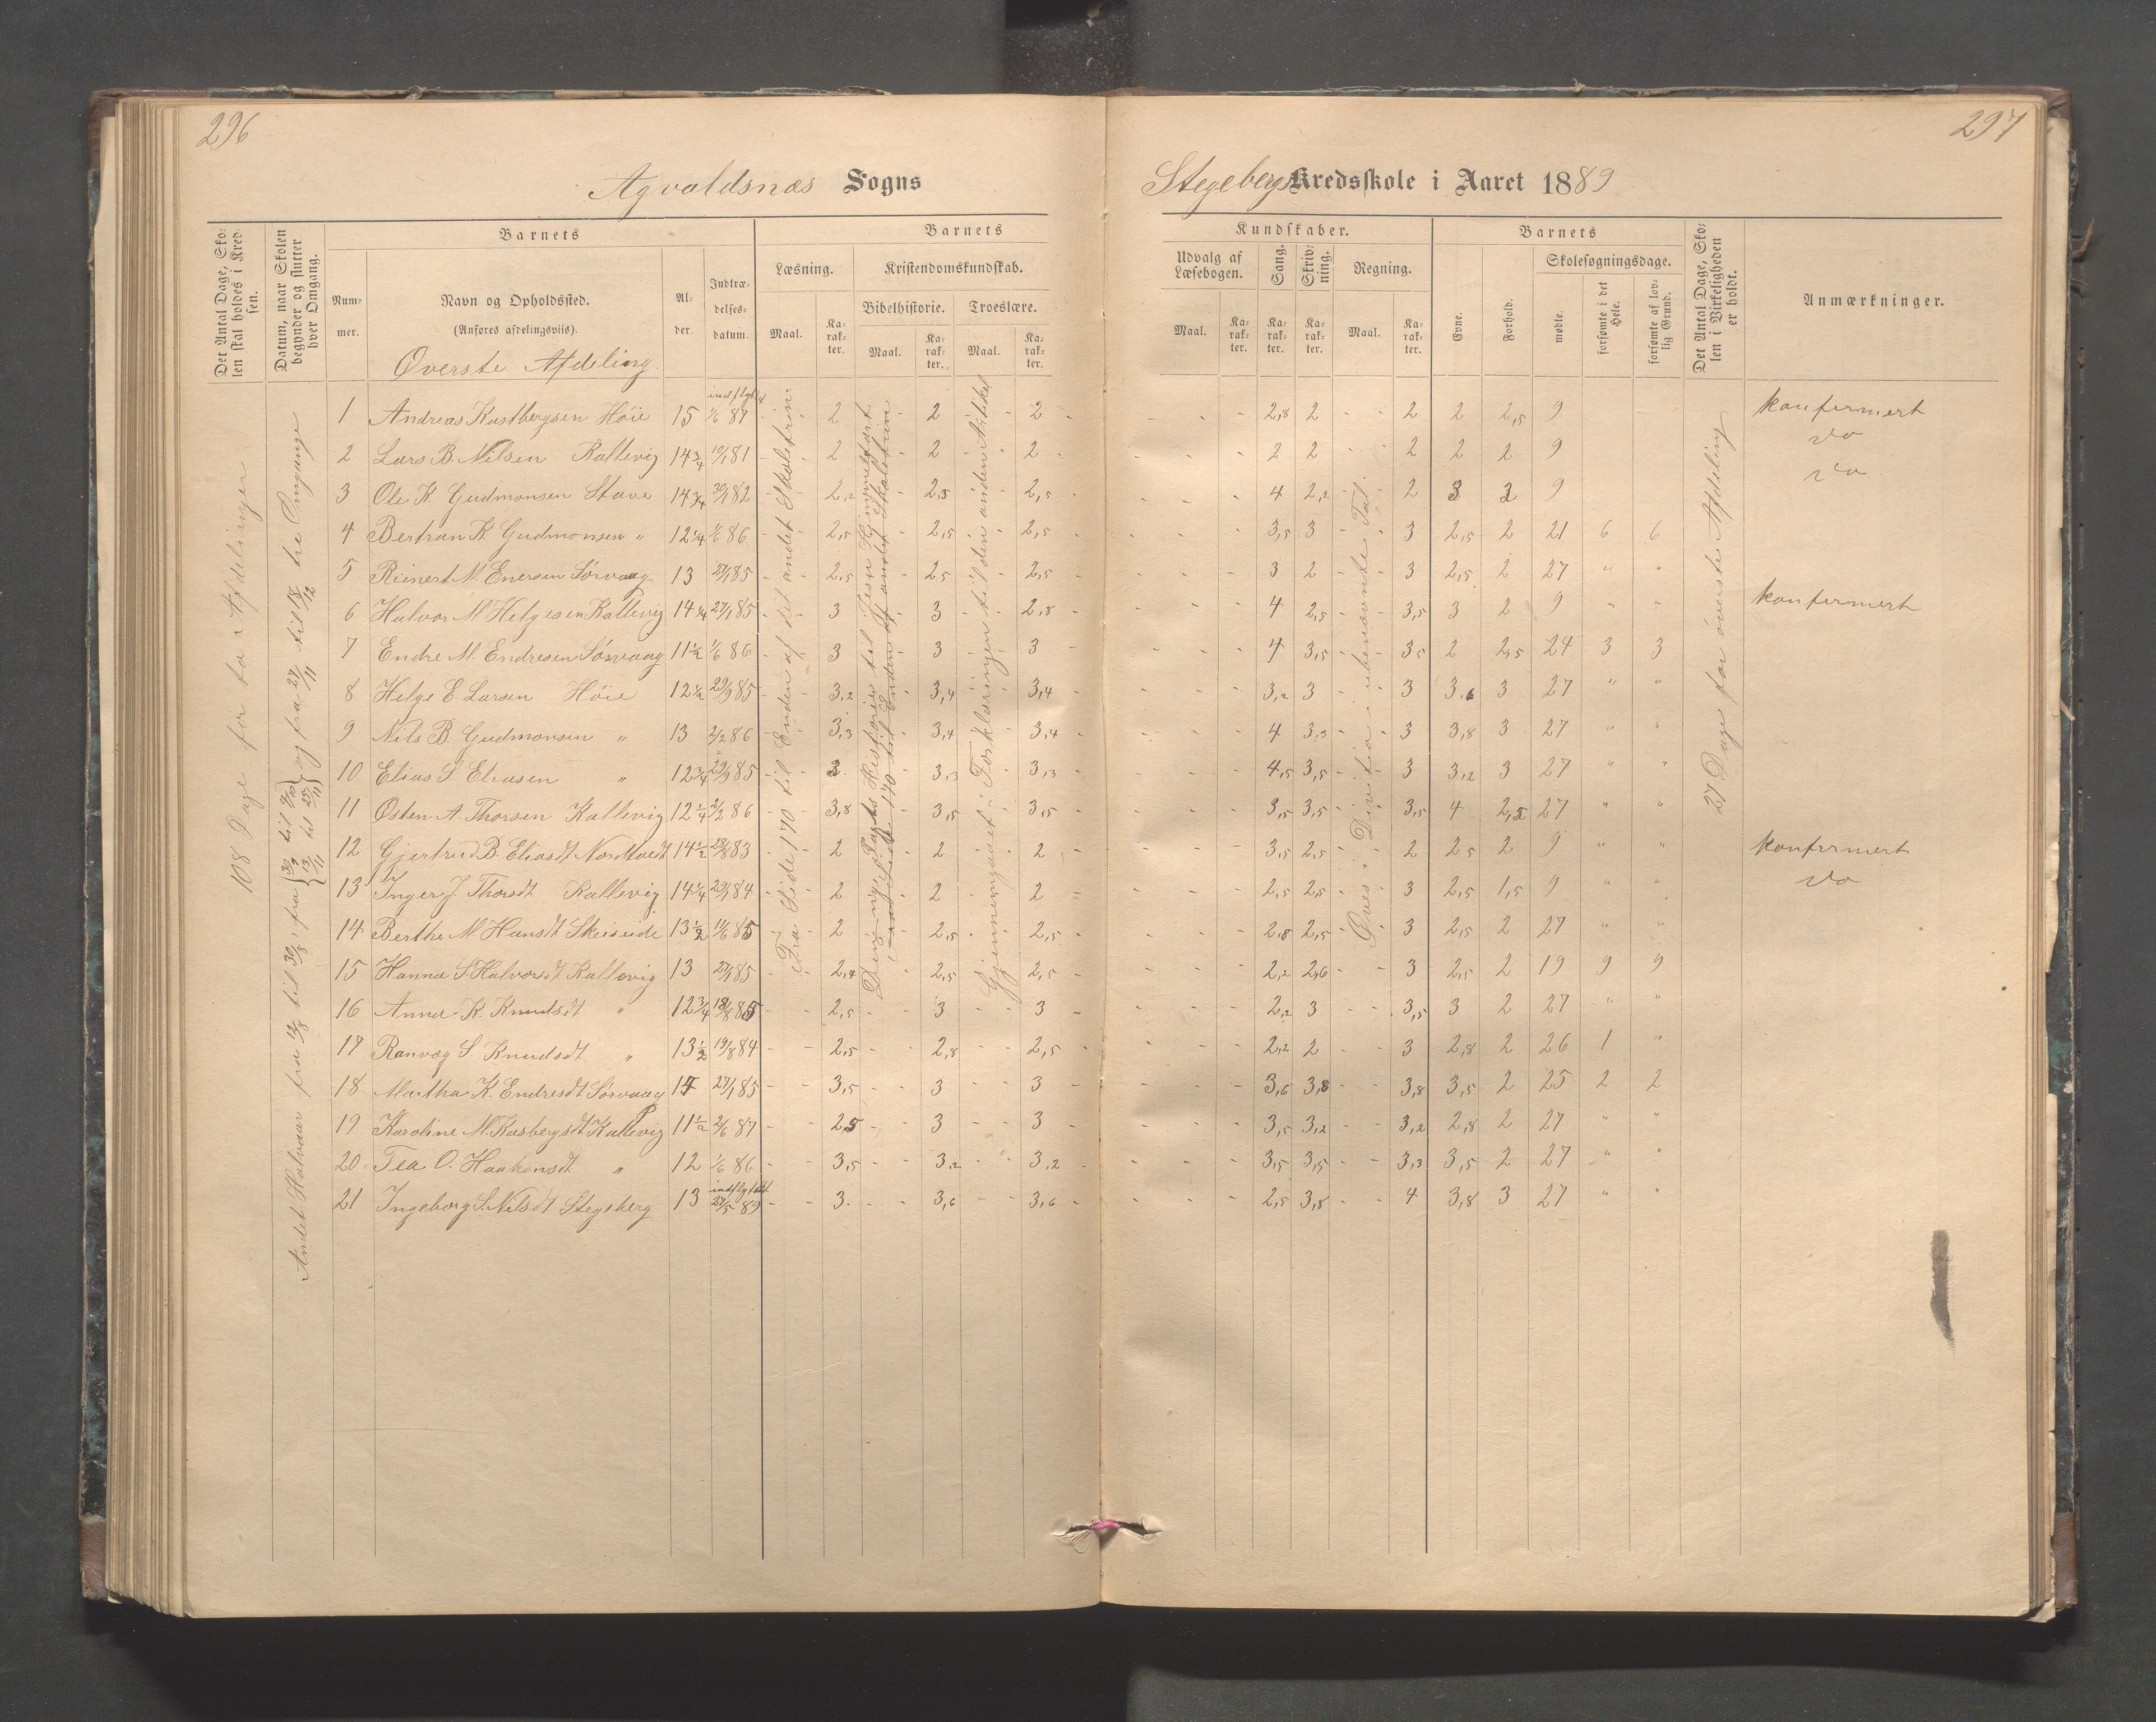 296
297
Agvaldsnæs Sogns
Stegebergs Kredsskole i Aaret 1889
Det Antal Dage, Skolen skal holdes i Kredsen.
Datum, naar Skolen begynder og slutter hver Omgang.
Barnets
Nummer.
Navn og Opholdssted.
(Anføres afdelingsviis).
Alder.
Indtrædelsesdatum.
Barnets
Læsning.
Kristendomskundskab.
Bibelhistorie. Troeslære.
Maal. Karakter. Maal. Karakter. Maal. Karakter.
Kundskaber.
Udvalg af Læsebogen.
Sang.
Skrivning.
Regning.
Maal. Karakter. Karakter. Karakter. Maal. Karakter.
Barnets
Evne.
Forhold.
Skolesøgningsdage.
mødte.
forsømte i det Hele.
forsømte af lovlig Grund.
Det Antal Dage, Skolen i Virkeligheden er holdt.
Anmærkninger.
Øverste Afdeling
108 Dage for to Afdelinger
Andet Halvaar fra 12/8 til 31/8, fra
til
og fra 27/11 til 18/12 tre Omgange
Fra Side 170 til Enden af det andet Skoletrin
til Jesu Himmelfart
Side 170 til Enden af andet Skoletrin
Gjennemgaaet i Forklaringen til den anden Artikel
Øves i Divisio i ubenævnte Tal
27 Dage for øverste Afdeling
1 Andreas Kastbergsen Høie 15 indflyttet 1/6 87 2 2 2 2,8 2 2 2 2,5 9 konfermert
2 Lars B. Nilsen Kallevig 14 3/4 19/1 81 2 2 2 2 2 2 2 2 9 do
3 Ole K. Gudmonsen Stave 14 3/4 30/1 82 2,2 2,5 2,5 4 2,2 2 3 2 9 do
4 Bertran K. Gudmonsen " 12 1/4 1/6 86 2,5 2,5 2,5 3,5 3 3 2,5 2 21 6 6
5 Reinert M. Enersen Sørvaag 13 27/1 85 2,5 2,5 2,5 3 2 3 2,5 2 27 " "
6 Halvor M. Helgesen Kallevig 14 1/4 27/1 85 3 3 2,8 4 2,5 3,5 3 2 9 " " konfermert
7 Endre M. Endresen Sørvaag 11 1/2 1/6 86 3 3 3 4 3,5 3,5 2 2,5 24 3 3
8 Helge E. Larsen Høie 12 1/2 29/9 85 3,2 3,4 3,4 3,2 3 3 3,6 3 27 " "
9 Nils B. Gudmonsen " 13 2/2 86 3,3 3,4 3,4 4 3,3 3 3,8 3 27 " "
10 Elias S. Eliasen " 12 3/4 29/9 85 3 3,3 3,3 4,5 3,5 3 3,2 3 27 " "
11 Østen A. Thorsen Kallevig 12 1/4 2/2 86 3,8 3,5 3,5 3,5 3,5 3,5 4 2,5 27 " "
12 Gjertrud B. Eliasdt Nordtvedt 14 1/2 28/8 83 2 2 2 3,5 2,5 2 2,5 2 9 " " konfermert
13 Inger J. Thorsdt Kallevig 14 1/4 29/1 84 2 2 2 2,5 2,5 3 2,5 1,5 9 " " do
14 Berthe M. Hansdt Skeiseide 13 1/2 11/6 85 2 2,5 2,5 2,8 2,5 3 2,5 2 27 " "
15 Hanna S. Halvorsdt Kallevig 13 27/1 85 2,4 2,5 2,5 2,2 2,6 3 2,5 2 19 9 9
16 Anna K. Knudsdt " 12 3/4 18/8 85 2,5 3 3 2,2 3 3,5 3 2 27 " "
17 Ranvæg S. Knudsdt " 13 1/2 19/8 84 2,5 2,8 2,5 2,2 2 3 2,8 2 26 1 "
18 Martha K. Endresdt Sørvaag 14 27/1 85 3,5 3 3 3,6 3,8 3,8 3,5 2 25 2 2
19 Karoline M. Kasbergsdt Kallevig 11 1/2 2/6 87 2,5 3 3 3,5 3,2 3,2 2,8 2 27 " "
20 Tea O. Haakonsdt " 12 1/6 86 3,5 3,2 3,2 3,5 3,5 3,3 3,5 2 27 " "
21 Ingeborg S. Nilsdt Stegeberg 13 indflyttet 27/5 89 3 3,6 3,6 2,5 3,8 4 3,8 3 27 " "